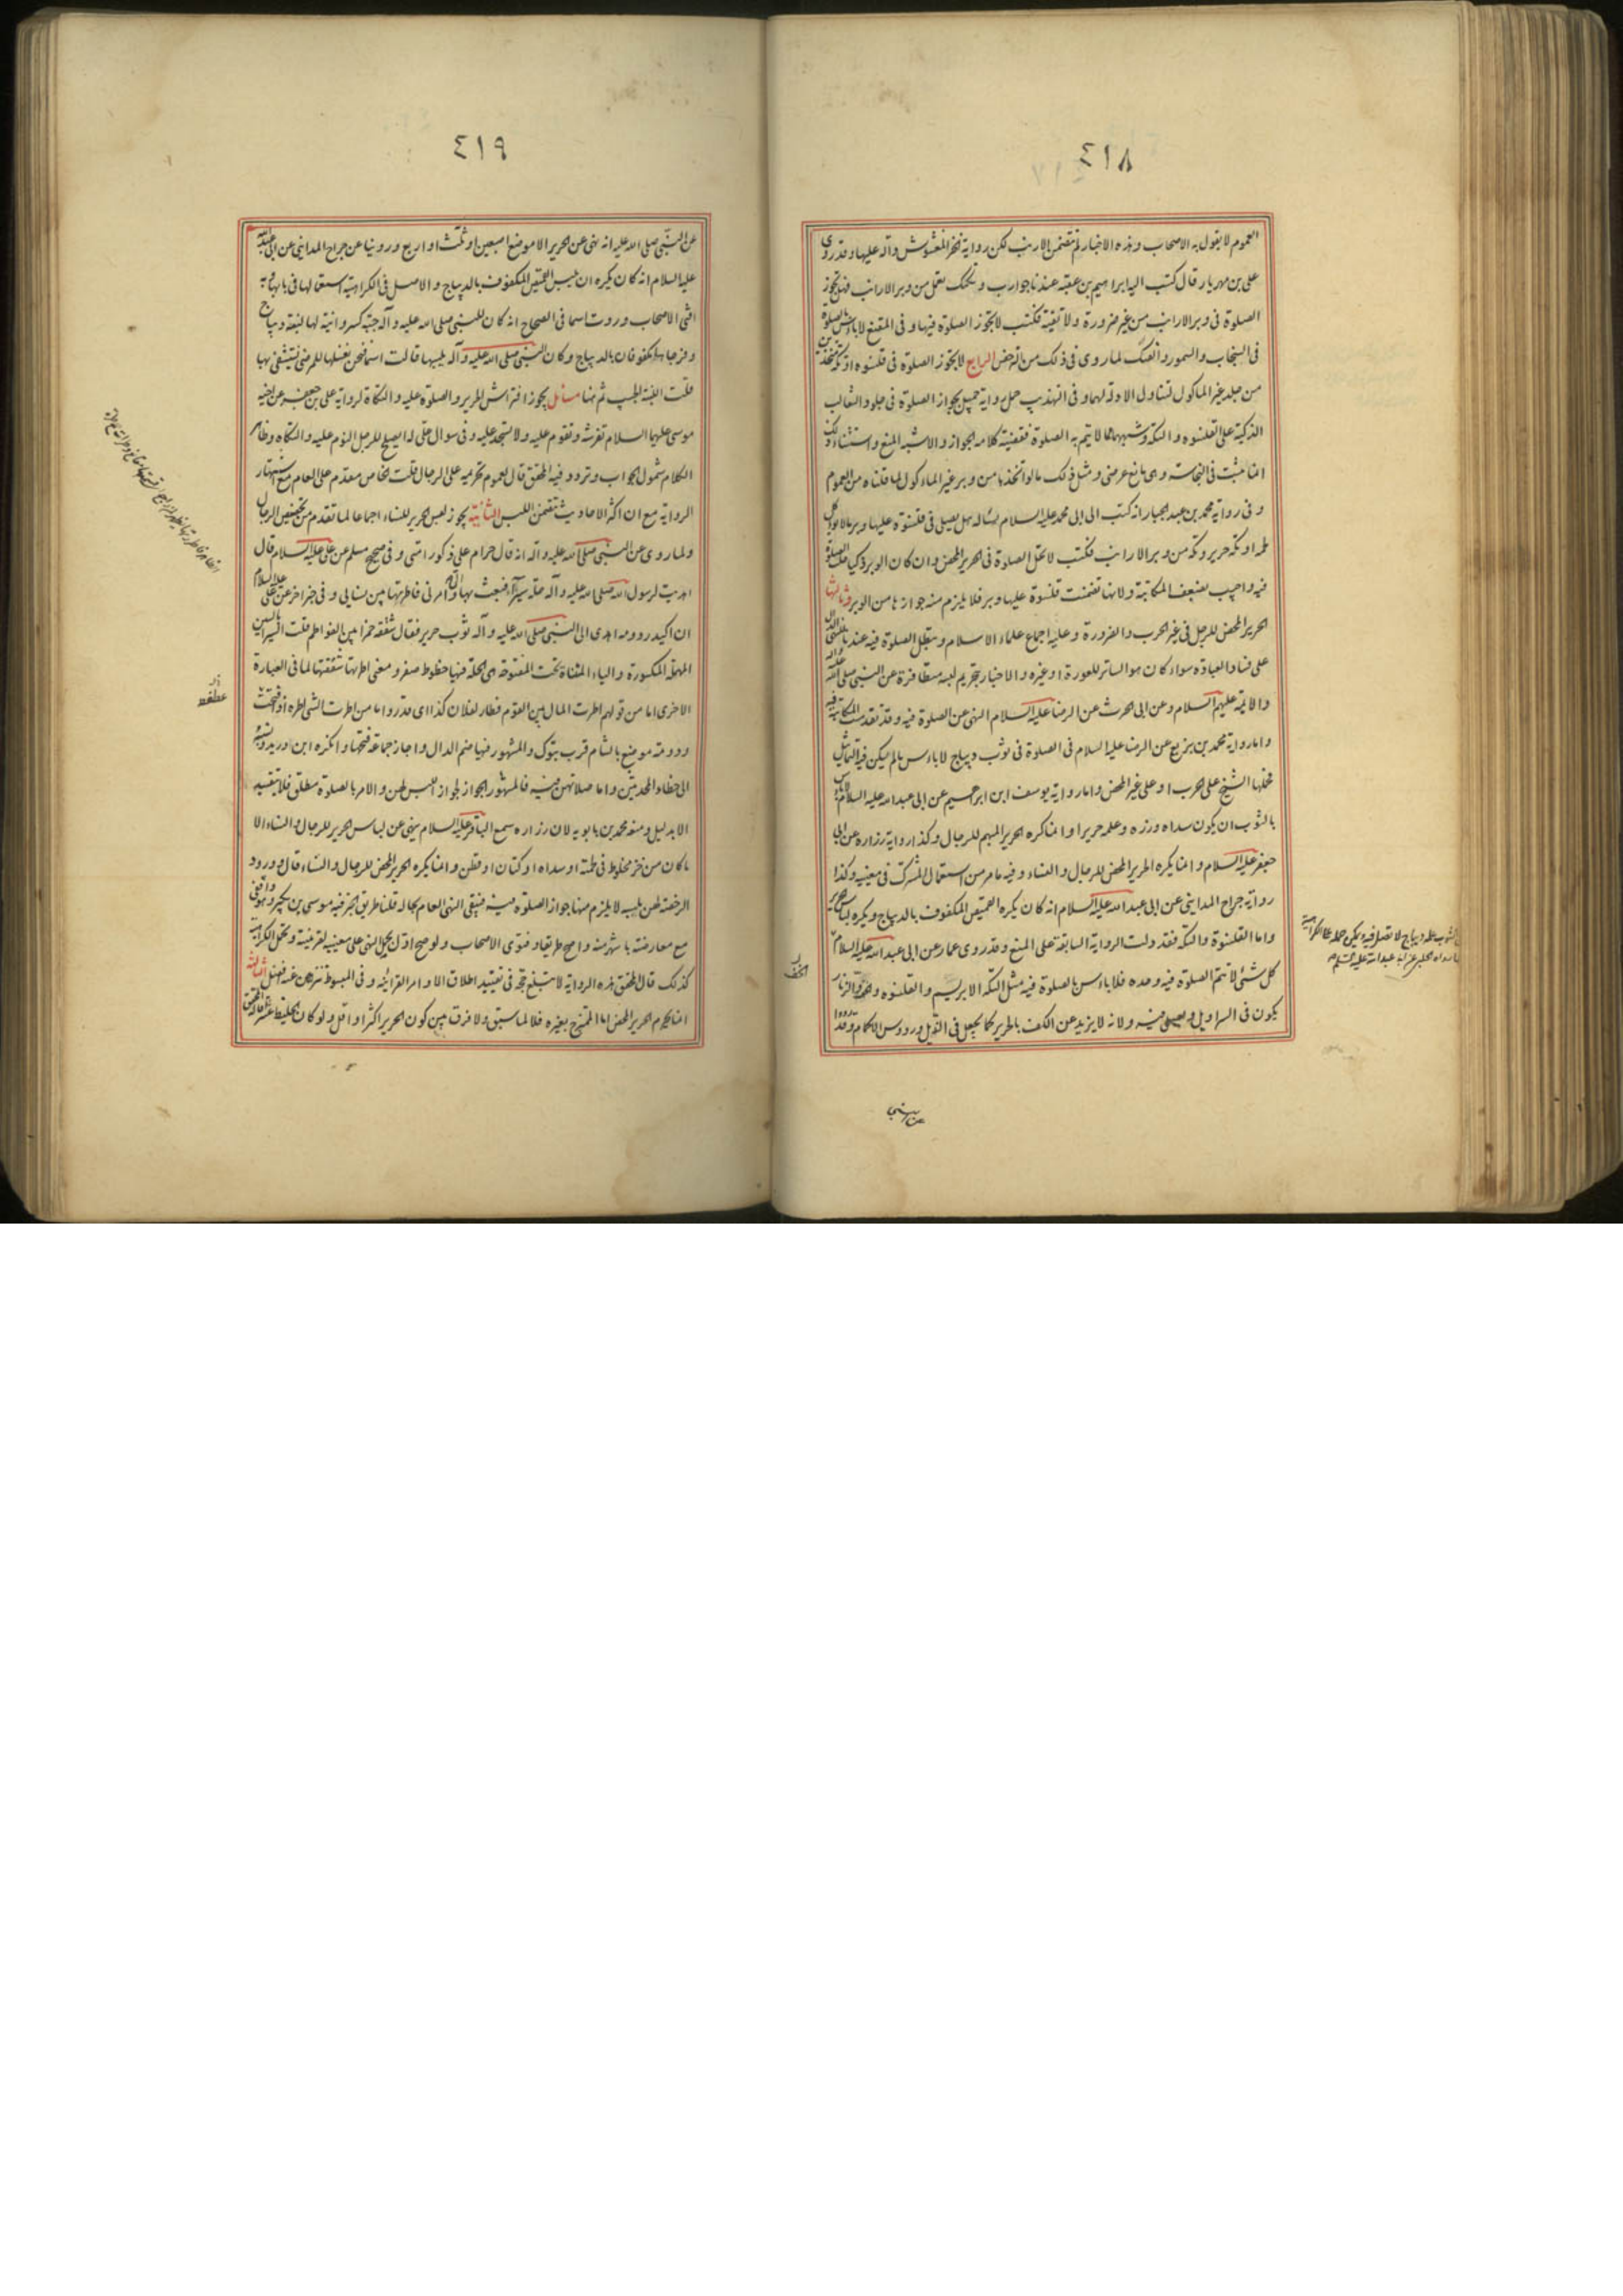 ٤١٨
العموم لا يقول به الاصحاب وهذه الاخبار لم تتضمن الارنب لكن رواية الخز المغشوش دالة عليها وقد روى
على بن مهزيار قال كتب اليه ابراهيم بن عقبة عندنا جوارب وتكك تعمل من وبر الارانب فهل تجوز
الصلوة فى وبر الارانب من غير ضرورة ولا تقية فكتب لا تجوز الصلوة فيها وفى المقنع لا باس بالصلوة
فى السنجاب والسمور والفنك لما روى فى ذلك من الرخص الرابع لا تجوز الصلوة فى قلنسوه او تكة متخذين
من جلد غير الماكول لتناول الادلة لهما وفى التهذيب حمل رواية جميل بجواز الصلوة فى جلود الثعالب
الذكية على القلنسوه والتكة وشبههما مما لا يتم به الصلوة فقضية كلامه الجواز والاشبه المنع واستثناء ذلك
انما يثبت فى النجاسة وهى مانع عرضى ومثل ذلك ما لو اتخذتا من وبر غير الماءكول لما قلناه من العموم
وفى رواية محمد بن عبد الجبار انه كتب الى ابى محمد عليه السلام يسئاله هل يصلى فى قلنسوة عليها وبر ما لا يوكل
لحمه او تكة حرير وتكة من وبر الارانب فكتب لا تحل الصلوة فى الحرير المحض وان كان الوبر ذكيا حلت الصلوة
فيه واجيب بضعف المكاتبة ولانها تضمنت قلنسوة عليها وبر فلا يلزم منه جوازها من الوبر وثالثها
الحرير المحض للرجل فى غير الحرب والضرورة وعليه اجماع علماء الاسلام وتبطل الصلوة فيه عندنا لنهى الدال
على فساد العبادة سواء كان هو الساتر للعورة او غيره والاخبار بتحريم لبسه متظافرة عن النبى صلى الله عليه واله
والائمة عليهم السلام وعن ابى الحرث عن الرضا عليه السلام النهى عن الصلوة فيه وقد تقدمت المكاتبة فيه
واما رواية محمد بن بزيع عن الرضا عليه السلام فى الصلوة فى ثوب ديباج لا باءس ما لم يكن فيه التماثيل
فحملها الشيخ على الحرب او على غير المحض واما رواية يوسف ابن ابرهيم عن ابى عبد الله عليه السلام لا باس
بالثوب ان يكون سداه وزره وعلمه حريرا وانما كره الحرير المبهم للرجال وكذا رواية زراره عن ابى
جعفر عليه السلام وانما يكره الحرير المحض للرجال والنساء وفيه ما مر من استعمال المشترك فى معنييه وكذا
رواية جراح المداينى عن ابى عبد الله عليه السلام انه كان يكره القميص المكفوف بالديباج ويكره لباس الحرير
واما القلنسوة والتكة فقد دلت الرواية السابقة على المنع وقد روى عمار عن ابى عبد الله عليه السلام
كل شئ لا تتم الصلوة فيه وحده فلا باءس بالصلوة فيه مثل التكة الابريسم والقلنسوه والزنار
يكون فى السراويل ويصلى فيه ولانه لا يزيد عن الكف بالحرير كما يجعل فى الذيل ورووس الاكمام وقد رووا
الخف
٤١٩
عن النبى صلى الله عليه انه نهى عن الحرير الا موضع اصبعين او ثلث او اربع وروينا عن جراح المداينى عن ابى عبد الله
عليه السلام انه كان يكره ان يلبس القميص المكفوف بالديباج والاصل فى الكراهية استعمالها فى بابها فبه
افتى الاصحاب وروت اسما فى الصحاح انه كان للنبى صلى الله عليه وآله جبة كسروانية لها لبنة ديباج
وفرجاها مكفوفان بالديباج وكان النبى صلى الله عليه وآله يلبسها قالت اسما فنحن نغسلها للمرضى يستشفى بها
قلت اللبنة الجيب ثم هنا مسائل يجوز افتراش الحرير والصلوة عليه والتكاة لرواية على بن جعفر عن اخيه
موسى عليهما السلام تفرشه وتقوم عليه ولا تسجد عليه وفى سوال على له ايصلح للرجل النوم عليه والتكاه وظاهر
الكلام شمول الجواب وتردد فيه المحقق قال لعموم تحريمه على الرجال قلت الخاص مقدم على العام مع اشتهار
الرواية مع ان اكثر الاحاديث تتضمن اللبس الثانية يجوز لبس الحرير للنساء اجماعا لما تقدم من تخصيص الرجال
ولما روى عن النبى صلى الله عليه وآله انه قال حرام على ذكور امتى وفى صحيح مسلم عن على عليه السلام قال
اهديت لرسول الله صلى الله عليه وآله حلة سيراء فبعث بها الى وامرنى فاطرتها بين نسايى وفى خبر اخر عن على عليه السلام
ان اكيدر دومه اهدى الى النبى صلى الله عليه وآله ثوب حرير فقال شققه خمرا بين الفواطم قلت السيراء بالسين
المهملة المكسورة والياء المثناة تحت المفتوحة هى الحلة فيها خطوط صفر ومعنى اطرتها شققتها لما فى العبارة
الاخرى اما من قولهم اطرت المال بين القوم فطار لفلان كذا اى قدر واما من اطرت الشى اطره اذا قسمته
ودومة موضع بالشام قرب تبوك والمشهور فيها ضم الدال واجاز جماعة فتحها وانكره ابن دريد ونسبه
الى خطاء المحدثين واما صلاتهن فيه فالمشهور الجواز لجواز اللبس لهن والامر بالصلوة مطلق فلا يتقيد
الا بدليل ومنعه محمد بن بابويه لان زراره سمع الباقر عليه السلام ينهى عن لباس الحرير للرجال والنساء الا
ما كان من خز مخلوط فى لحمته او سداه او كتان او قطن وانما يكره الحرير المحض للرجال والنساء قال وورود
الرخصة لهن بلبسه لا يلزم منها جواز الصلوة فيه فيبقى النهى العام بحاله قلنا طريق الخبر فيه موسى بن بكير وهو واقفى
مع معارضته باشهر منه واصح طريقا وفتوى الاصحاب ولو صح اول بحمل النهى على معنييه لقرينة وتحمل الكراهية
كذلك قال المحقق هذه الرواية لا تبلغ حجة فى تقييد اطلاق الاوامر القرانيه وفى المبسوط تنزههن عنه افضل الثالثة
انما يحرم الحرير المحض اما الممتزج بغيره فلا لما سبق ولا فرق بين كون الحرير اكثر او اقل ولو كان الخليط عشرا قاله المحقق